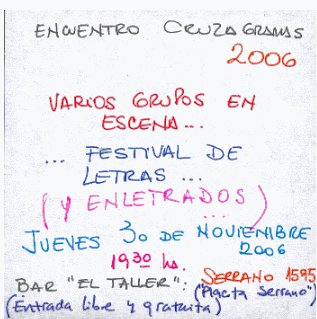 ENCUENTRO CRUZAGRAMAS
2006
VARIOS GRUPOS EN
ESCENA...
... FESTIVAL DE
LETRAS ...
(Y ENLETRADOS)
...
JUEVES 30 DE NOVIEMBRE
2006
19 30 hs.
BAR "EL TALLER": SERRANO 1595
(Entrada libre y gratuita) ("Placita Serrano")